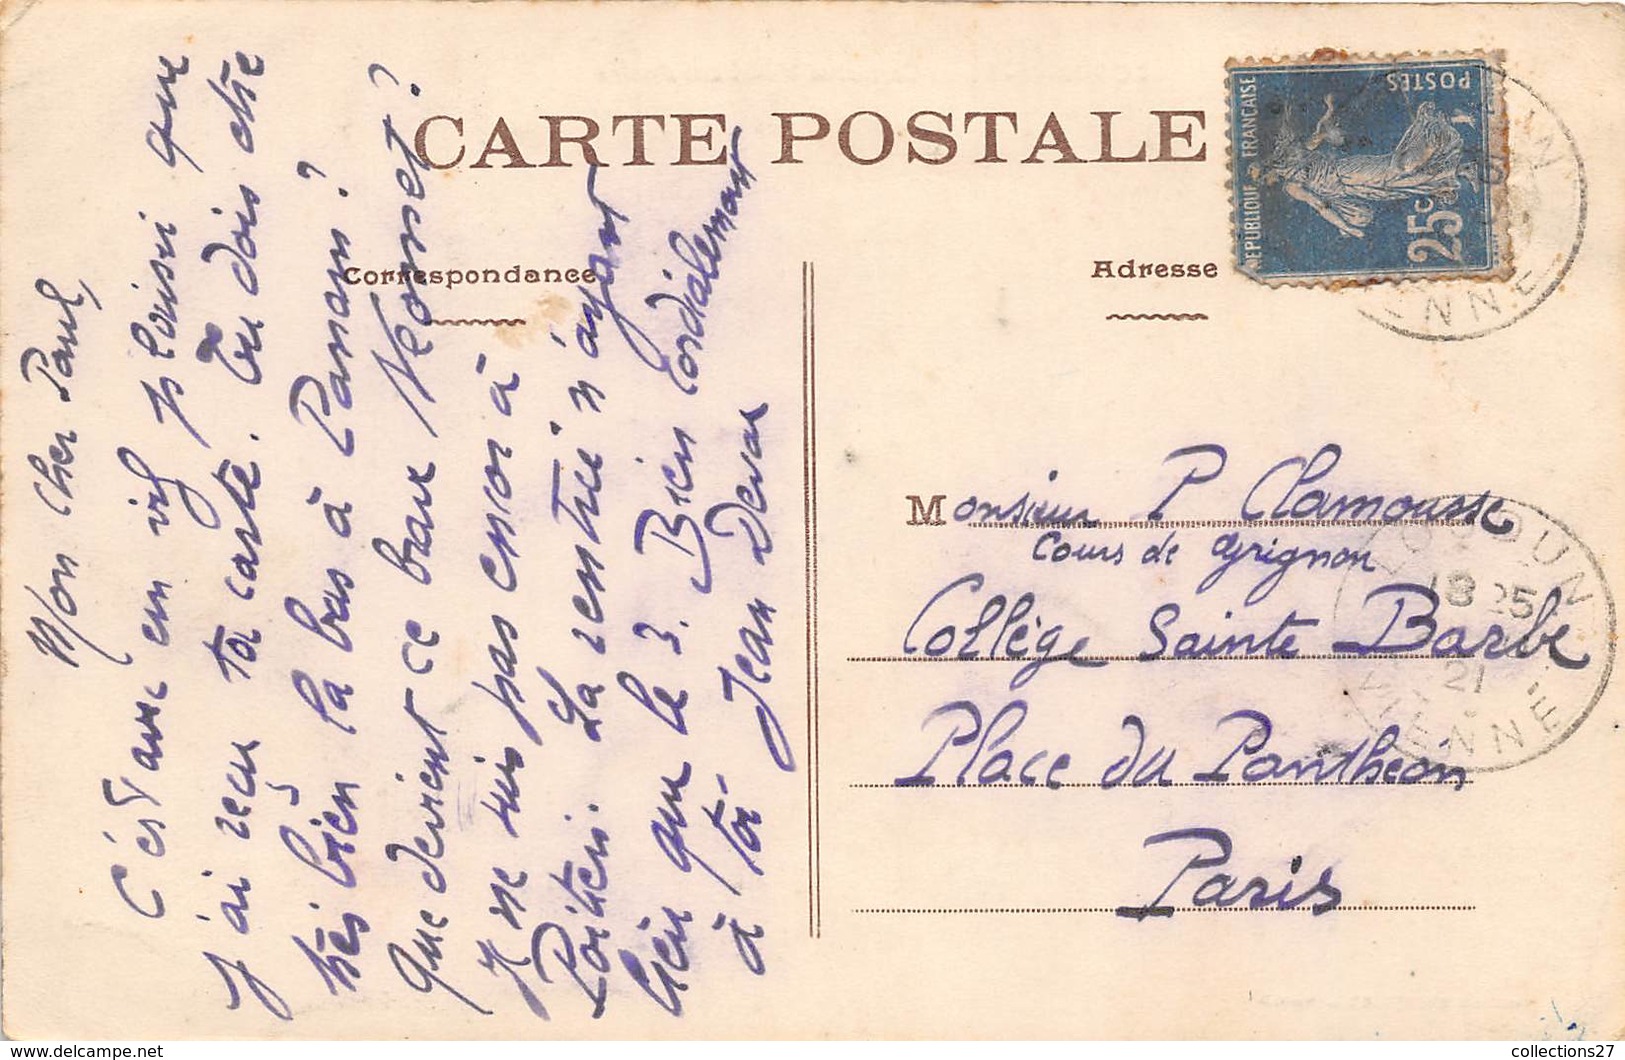 CARTE POSTALE
Correspondance
Adresse
Mon cher Paul,
C'est avec un vif plaisir que
j'ai reçu ta carte. Tu dois être
très bien là bas à Panam?
Que devient ce brave Neomet?
Je ne suis pas encor à
Poitiers. La rentrée n'ayant
lieu que le 3. Bien cordialement
à toi
Jean
REPUBLIQUE FRANÇAISE
POSTES
25c
Monsieur P Clamousse
Cours de Grignon
Collège Sainte Barbe
Place du Panthéon
Paris
LOUDUN
18 25
21
VIENNE
collections27